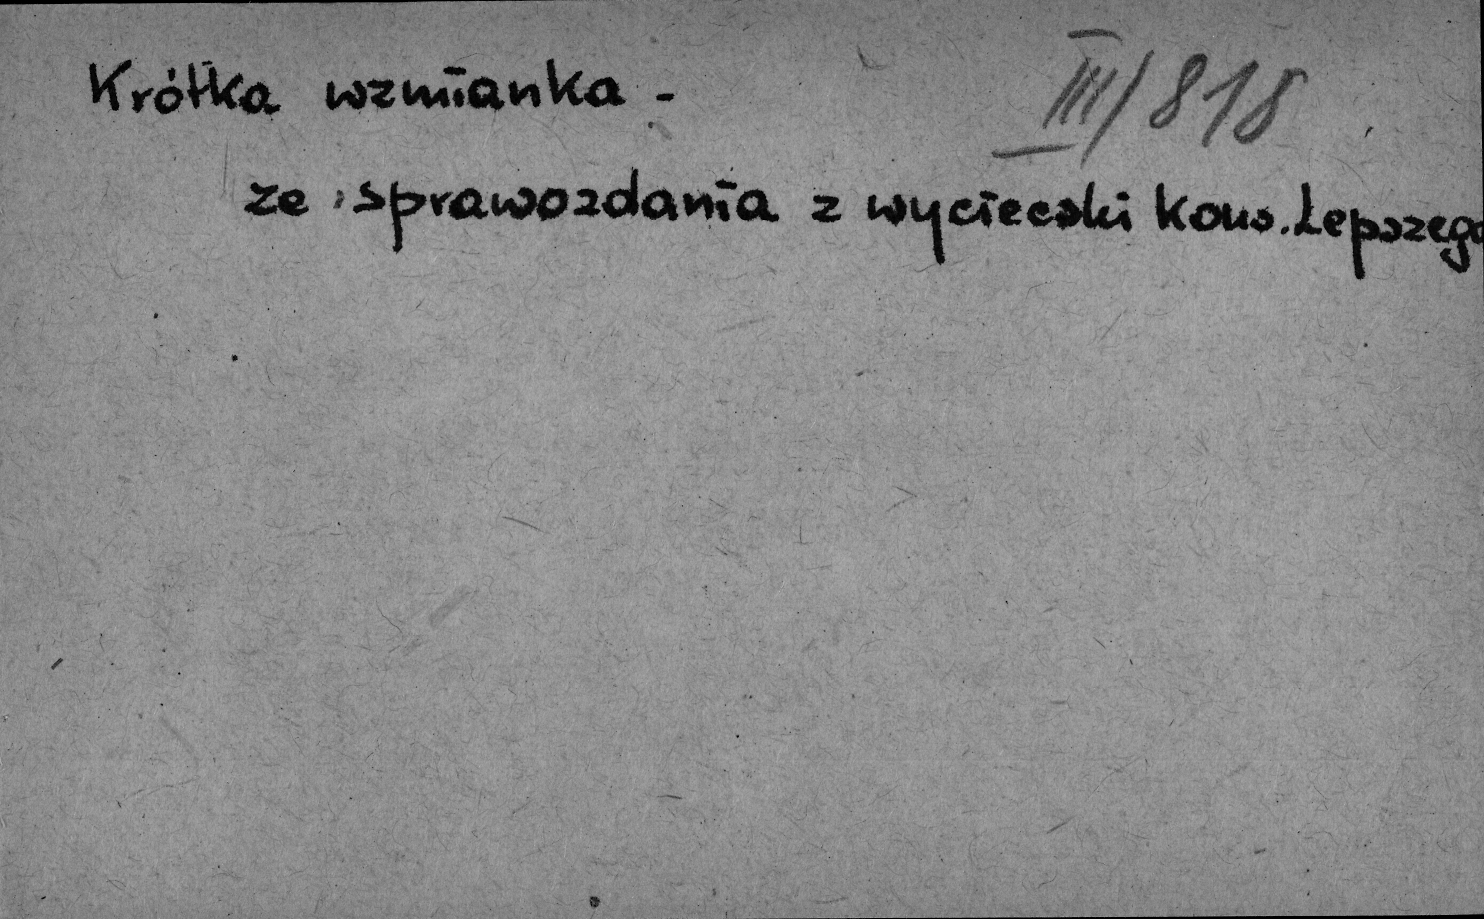 Krótka wzmianka - III/818
ze sprawozdania z wycieczki Kons. Lepszego